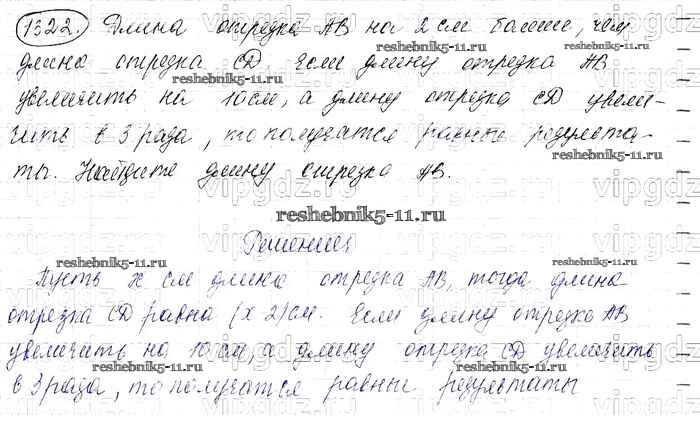 1322. Длина отрезка AB на 2 см больше, чем
длина отрезка CD. Если длину отрезка AB
увеличить на 10 см, а длину отрезка CD увели-
чить в 3 раза, то получатся равные результа-
ты. Найдите длину отрезка AB.
reshebnik5-11.ru
Решение
Пусть x см длина отрезка AB, тогда длина
отрезка CD равна (x 2) см. Если длину отрезка AB
увеличить на 10 см, а длину отрезка CD увеличить
в 3 раза, то получатся равные результаты